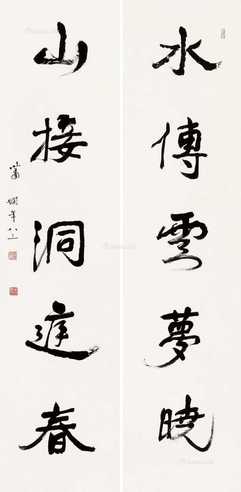 水傳雲夢曉
山接洞庭春
蕭嫻年八十